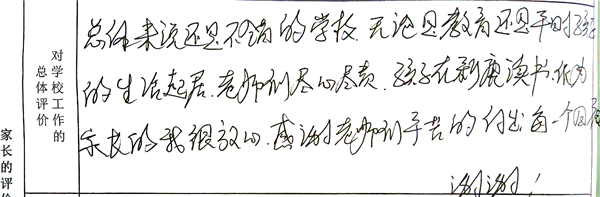 对学校工作的
总体评价
家长的评价
总体来说还是不错的学校.无论是教育还是平时孩子
的生活起居.老师们尽心尽责.孩子在新鹿读书.作为
家长的我很放心.感谢老师们辛苦的付出每一个回
谢谢!